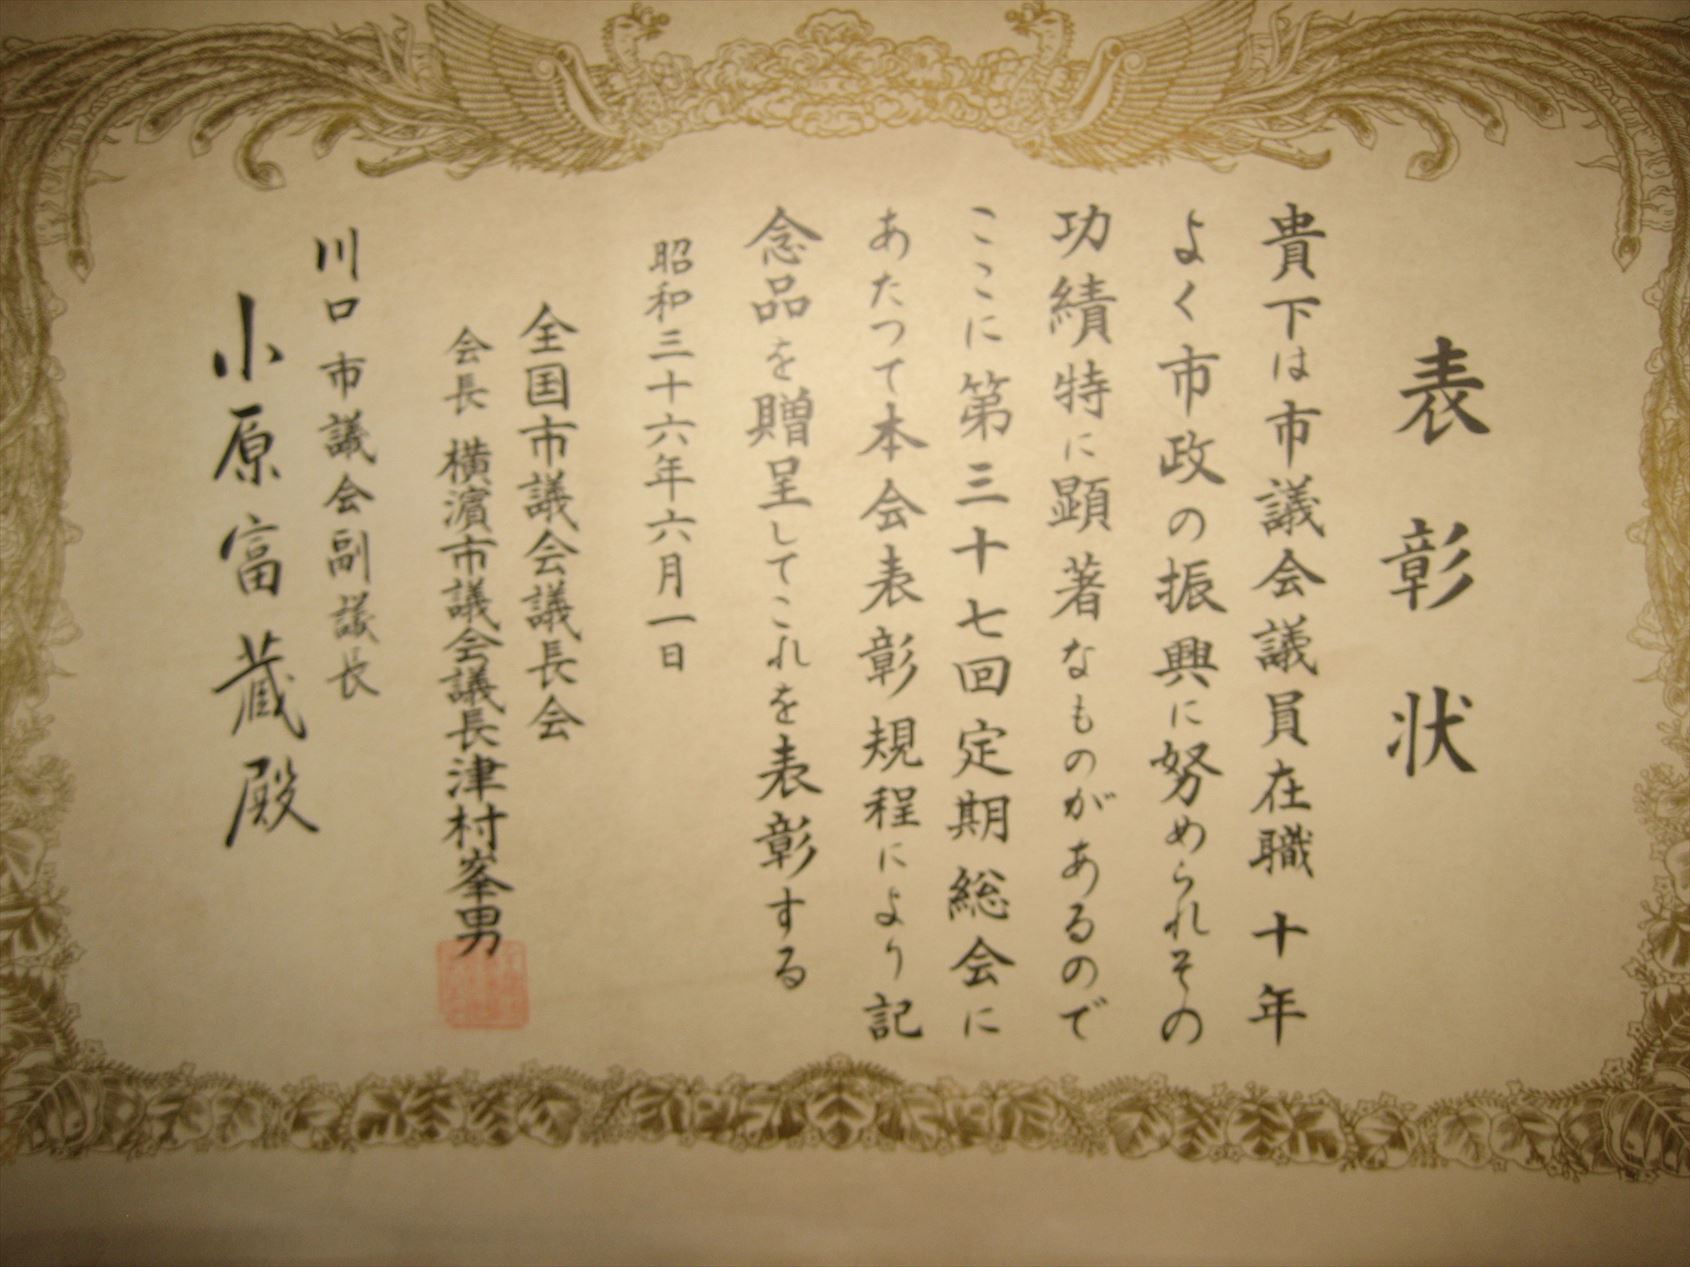 表彰状
貴下は市議会議員在職十年
よく市政の振興に努められその
功績特に顕著なものがあるので
ここに第三十七回定期総会に
あたつて本会表彰規程により記
念品を贈呈してこれを表彰する
昭和三十六年六月一日
全国市議会議長会
会長 横濱市議会議長津村峯男
川口市議会副議長
小原富蔵殿